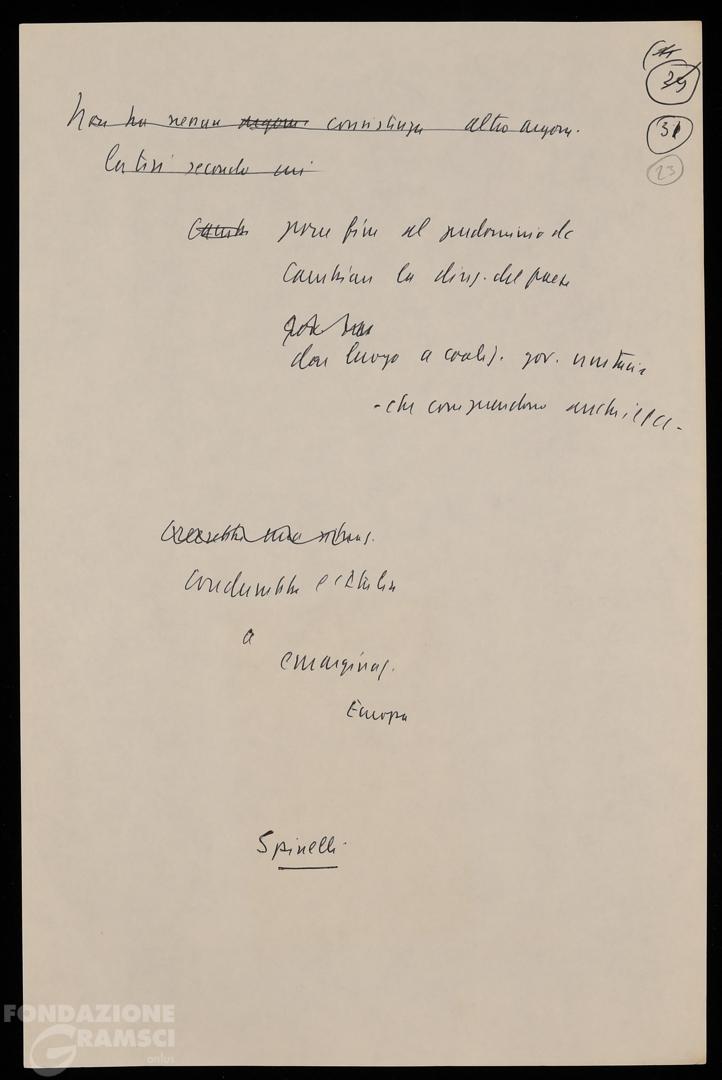 29
31
23
Non ha nessun argom. consistenza altro argom.
la tesi secondo cui
Camb porre fine al predominio dc
cambiare la direz. del paese
dar luogo a coaliz. gov. unitarie
- che comprendano anche il PCI -
condurrebbe l'Italia
a
emarginaz.
Europa
Spinelli
FONDAZIONE
GRAMSCI
onlus